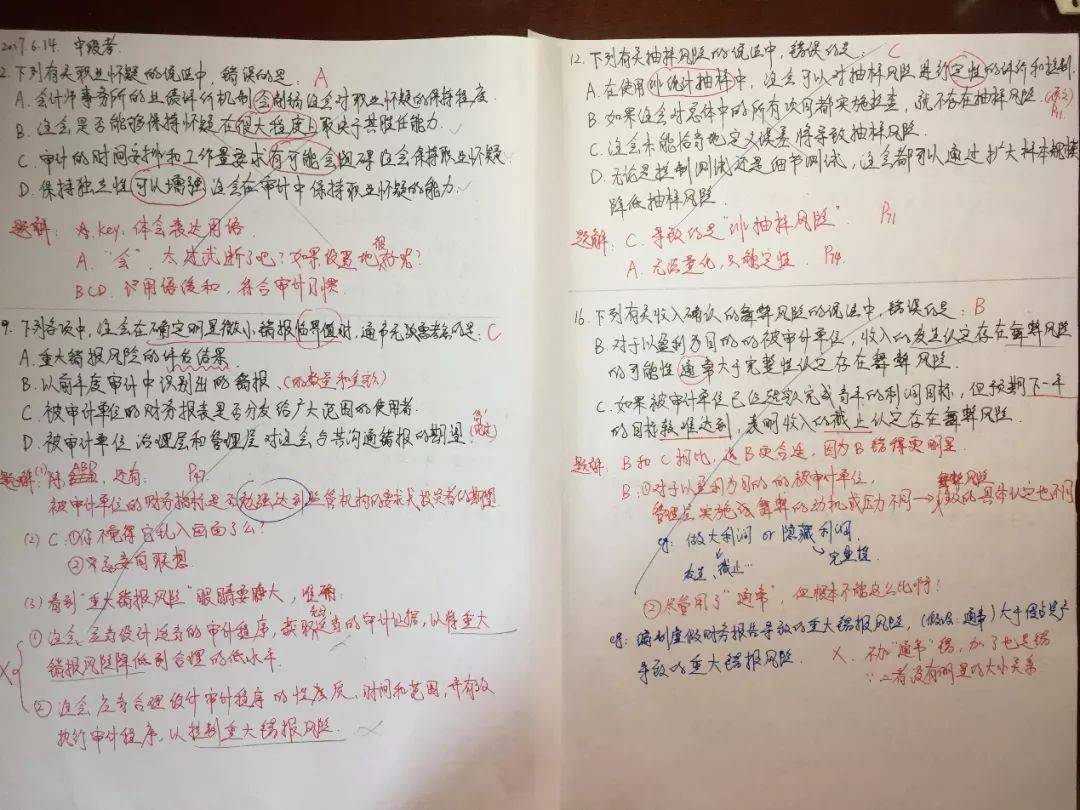 2017.6.14.
2. 下列有关职业怀疑的说法中，错误的是： A
A. 会计师事务所的业绩评价机制会削弱注会对职业怀疑的保持程度.
B. 注会是否能够保持怀疑在很大程度上取决于其胜任能力. ✓
C. 审计的时间安排和工作量要求有可能会阻碍注会保持职业怀疑.
D. 保持独立性可以增强注会在审计中保持职业怀疑的能力. ✓
题解： A. key: 体会表达用语.
A. “会”，太过武断了吧？如果设置地很好呢？
BCD. 用语缓和，符合审计习惯.
9. 下列各项中，注会在确定明显微小错报临界值时，通常无须考虑的是： C
A. 重大错报风险的评估结果.
B. 以前年度审计中识别出的错报. (的数量和金额)
C. 被审计单位的财务报表是否分发给广大范围的使用者.
D. 被审计单位治理层和管理层对注会与其沟通错报的期望.
题解：(1) 除 还有：
被审计单位的财务指标是否勉强达到监管机构的要求或投资者的期望.
(2) C. ①你不觉得它乱入画面了么？
②不要妄自联想.
(3) 看到“重大错报风险”眼睛要睁大，准确：
① 注会 设计适当的审计程序，获取充分适当的审计证据，以将重大
错报风险降低到合理的低水平.
② 注会应当合理设计审计程序的性质、时间和范围，并有效
执行审计程序，以控制重大错报风险.
12. 下列有关抽样风险的说法中，错误的是： C
A. 在使用非统计抽样中，注会可以对抽样风险进行定性的评价和控制.
B. 如果注会对总体中的所有项目都实施检查，就不存在抽样风险.
C. 注会未能恰当地定义误差将导致抽样风险.
D. 无论是控制测试还是细节测试，注会都可以通过扩大样本规模
降低抽样风险.
题解： C. 导致的是“非抽样风险”.
A. 无法量化，只能定性.
16. 下列有关收入确认的舞弊风险的说法中，错误的是： B
B. 对于以盈利为目的的被审计单位，收入的发生认定存在舞弊风险
的可能性通常大于完整性认定存在舞弊风险.
C. 如果被审计单位已经超额完成当年的利润目标，但预期下一年
的目标较难达到，表明收入的截止认定存在舞弊风险.
题解： B和C相比，选B更合适，因为B错得更明显.
B. ①对于以盈利为目的的被审计单位，
管理层实施该舞弊的动机或压力不同 → 舞弊风险 的具体认定也不同
eg: 做大利润 or 隐藏利润.
发生、截止… 完整性.
②尽管用了“通常”，但根本不能这么比啊！
eg: 编制虚假财务报告导致的重大错报风险，(假设：通常) 大于侵占资产
导致的重大错报风险. X. 不加“通常”错，加了也是错
∵二者没有明显的大小关系